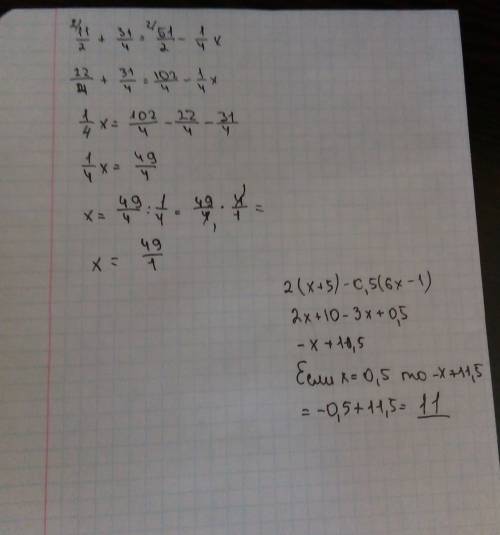 ²⁄ 11/2 + 31/4 = ²⁄ 51/2 - 1/4 x
22/4 + 31/4 = 102/4 - 1/4 x
1/4 x = 102/4 - 22/4 - 31/4
1/4 x = 49/4
x = 49/4 : 1/4 = 49/4 · 4/1 =
x = 49/1
2(x+5)-0,5(6x-1)
2x+10-3x+0,5
-x+10,5
Если x=0,5 то -x+11,5
= -0,5+11,5= 11